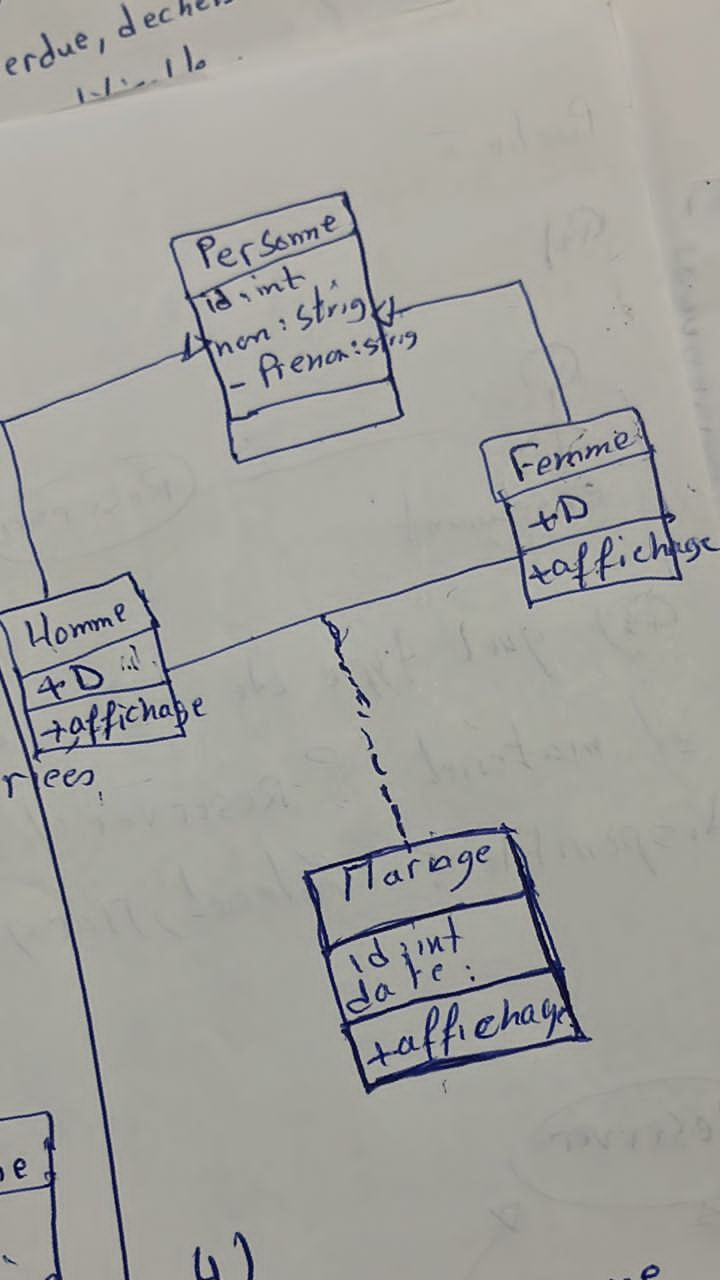 erdue, deche
Personne
id: int
nom: strig
- Prenom: strig
Femme
+D
+affichage
Homme
+D id
+affichage
riees,
Mariage
id: int
date:
+affichage
e
4)